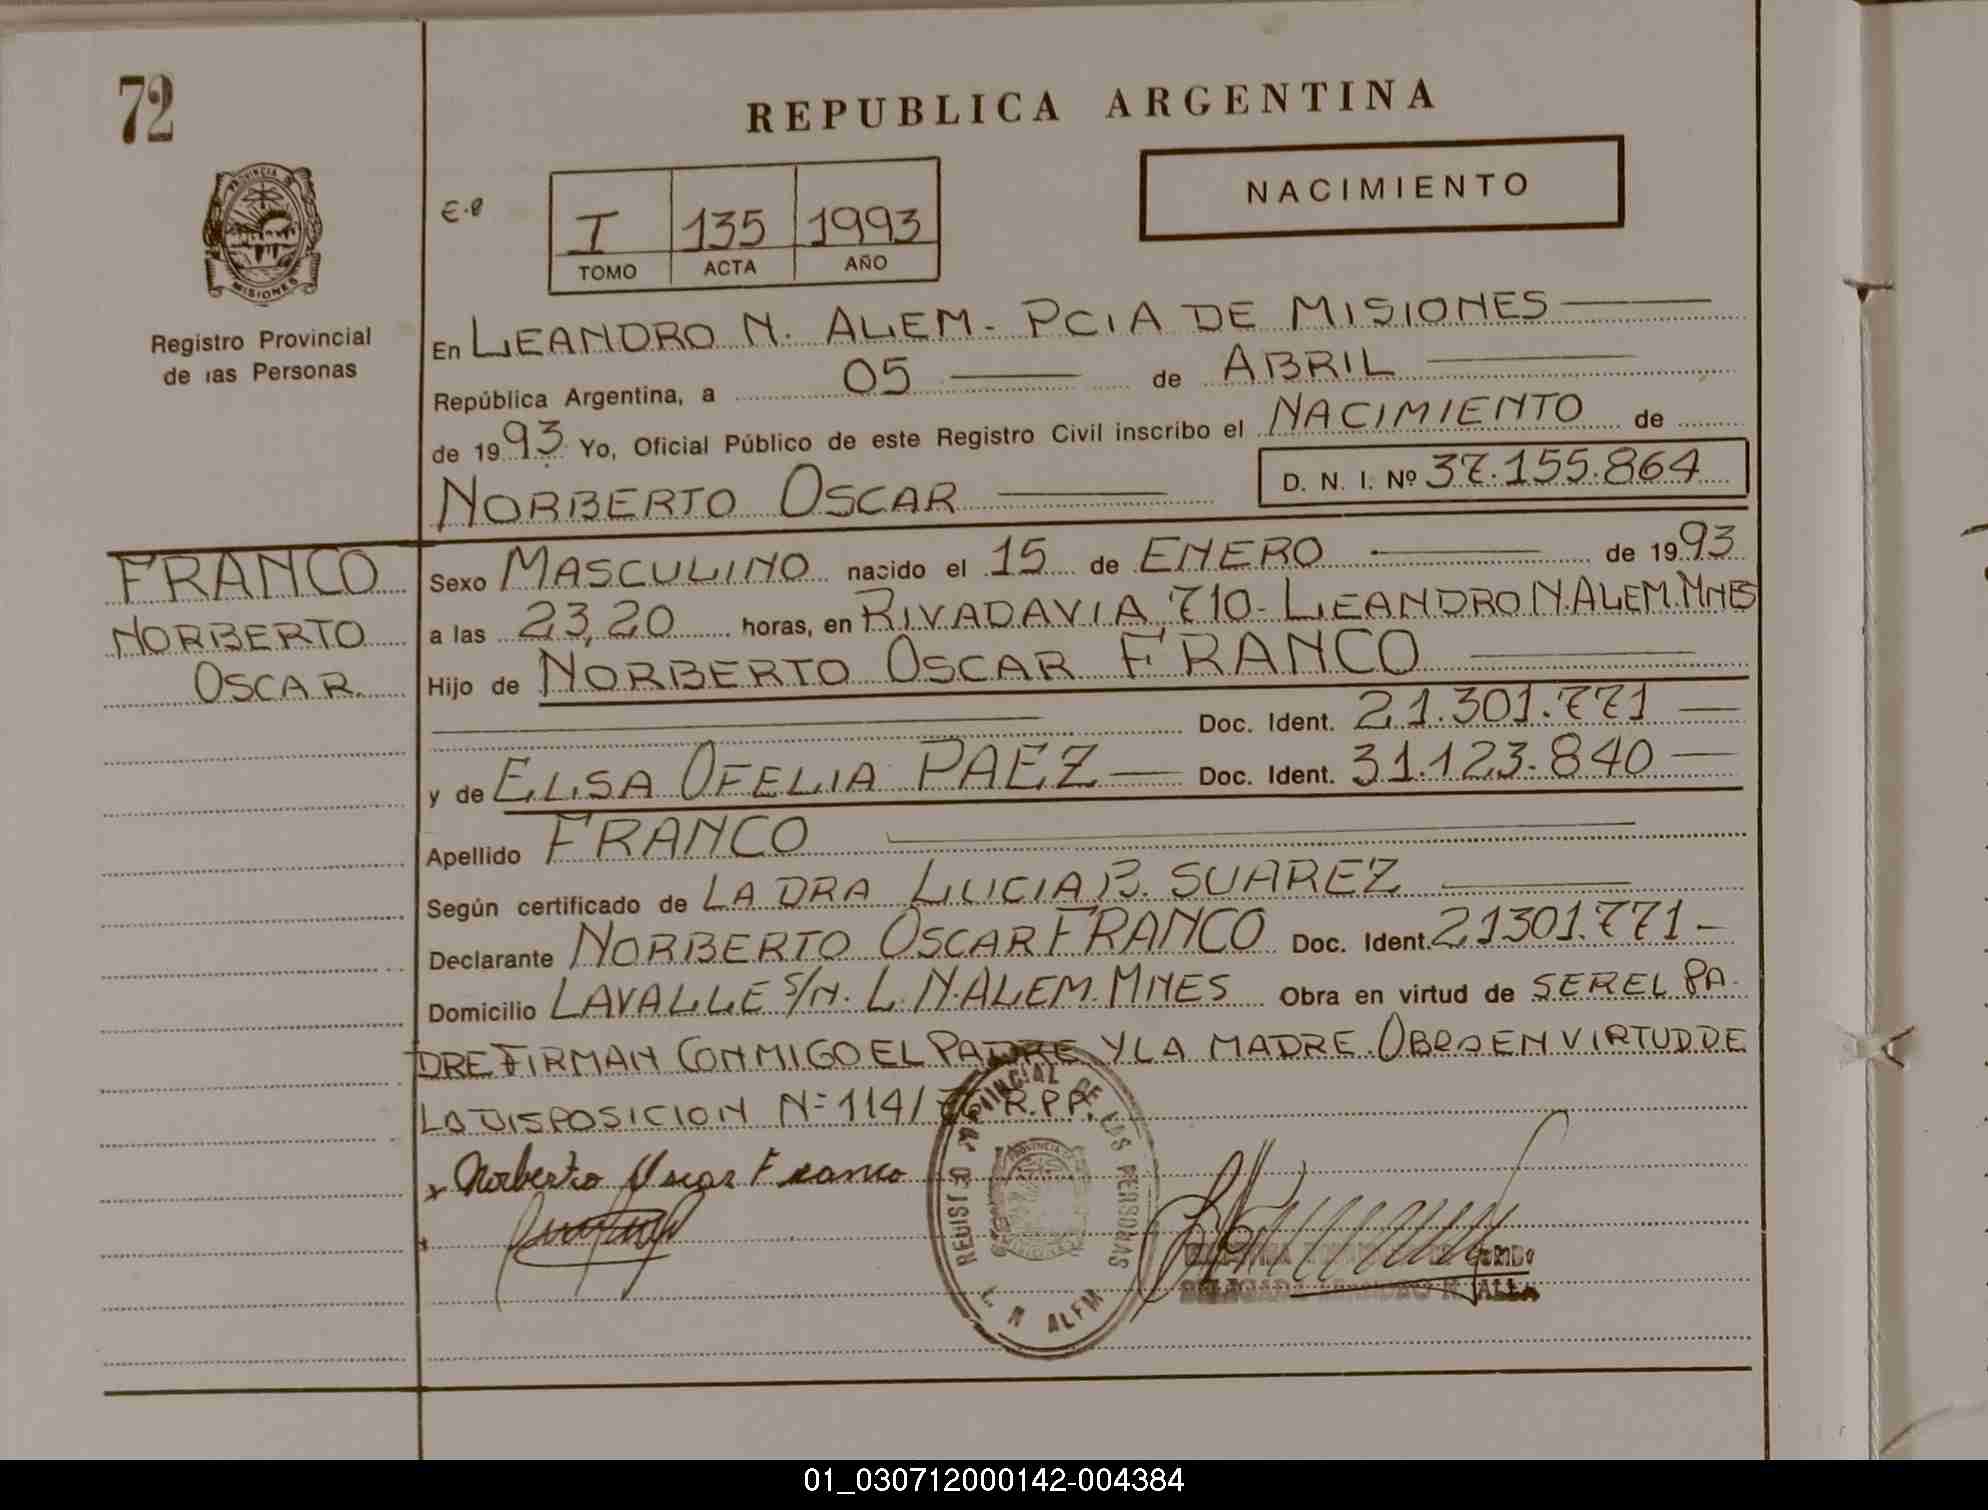 72
REPUBLICA ARGENTINA
PROVINCIA D
MISIONES
Registro Provincial
de las Personas
E.P
I 135 1993
TOMO ACTA AÑO
NACIMIENTO
En LEANDRO N. ALEM - PCIA DE MISIONES
República Argentina, a 05 de ABRIL
de 1993 Yo, Oficial Público de este Registro Civil inscribo el NACIMIENTO de
NORBERTO OSCAR D. N. I. Nº 37.155.864
FRANCO
NORBERTO
OSCAR
Sexo MASCULINO nacido el 15 de ENERO de 1993
a las 23,20 horas, en RIVADAVIA 710 - LEANDRO N. ALEM. MNES
Hijo de NORBERTO OSCAR FRANCO
Doc. Ident. 21.301.771
y de ELSA OFELIA PAEZ Doc. Ident. 31.123.840
Apellido FRANCO
Según certificado de LA DRA LUCIA B. SUAREZ
Declarante NORBERTO OSCAR FRANCO Doc. Ident. 21301.771
Domicilio LAVALLE S/N. L. N. ALEM. MNES Obra en virtud de SER EL PA-
DRE FIRMAN CONMIGO EL PADRE Y LA MADRE. OBRO EN VIRTUD DE
LA DISPOSICION Nº 114/ R.P.P.
x Norberto Oscar Franco
REGISTRO PROVINCIAL DE LAS PERSONAS
PROVINCIA
MISIONES
L. N. ALEM
N ALEM
01_030712000142-004384